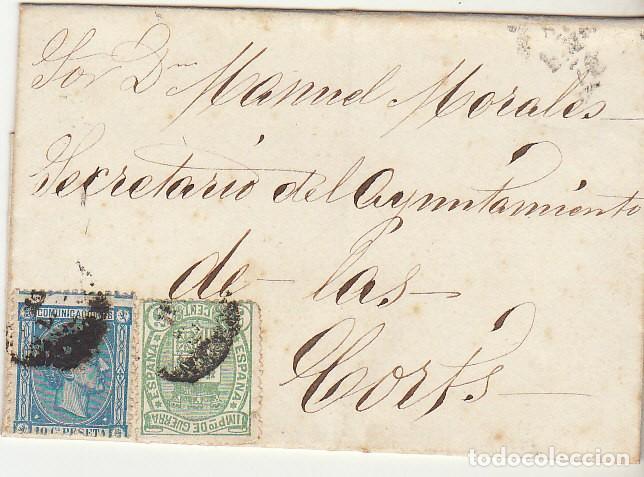 Sor Dn Manuel Morales
Secretario del Ayuntamiento
de las
Corts
COMUNICACIONES
10 Cs PESETA
CENT
ESPAÑA
ESPAÑA
IMPTO DE GUERRA
todocoleccion